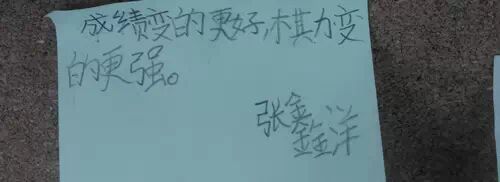 成绩变的更好,棋力变
的更强。
张鑫洋